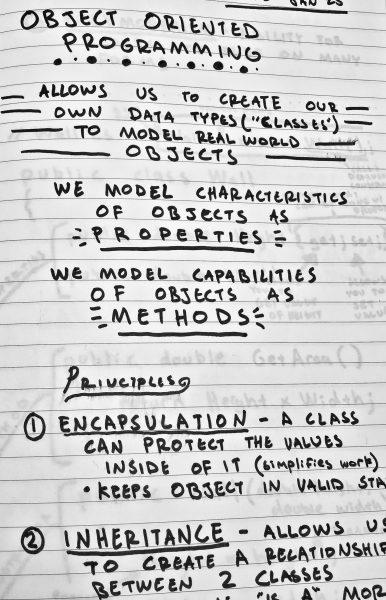 JAN 25
OBJECT ORIENTED
PROGRAMMING
ALLOWS US TO CREATE OUR
OWN DATA TYPES ("CLASSES")
TO MODEL REAL WORLD
OBJECTS
WE MODEL CHARACTERISTICS
OF OBJECTS AS
PROPERTIES
WE MODEL CAPABILITIES
OF OBJECTS AS
METHODS
PRINCIPLES
① ENCAPSULATION - A CLASS
CAN PROTECT THE VALUES
INSIDE OF IT (simplifies work)
• KEEPS OBJECT IN VALID STA
② INHERITANCE - ALLOWS US
TO CREATE A RELATIONSHIP
BETWEEN 2 CLASSES
"IS A" MOR